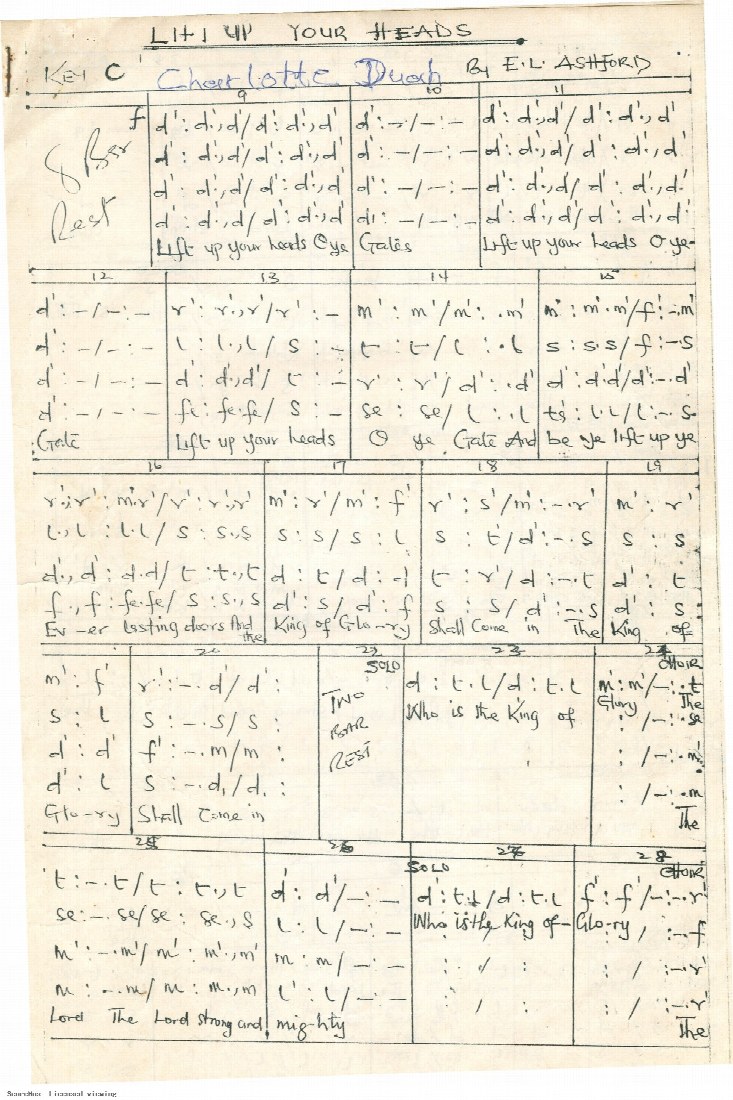 LIFT UP YOUR HEADS
KEY C Charlotte Duah By E.L. ASHFORD
9 10 11
8 Bar Rest
f d' : d'.,d'/ d' : d'.,d' d' : - / - : - d' : d'.,d'/ d' : d'.,d'
d' : d'.,d'/ d' : d'.,d' d' : - / - : - d' : d'.,d'/ d' : d'.,d'
d' : d'.,d'/ d' : d'.,d' d' : - / - : - d' : d'.,d'/ d' : d'.,d'
d' : d'.,d'/ d' : d'.,d' d' : - / - : - d' : d'.,d'/ d' : d'.,d'
Lift up your heads O ye Gates Lift up your heads O ye-
12 13 14 15
d' : - / - : - r' : r'.,r'/ r' : - m' : m'/ m' : .m' m' : m'.m'/ f' : -.m'
d' : - / - : - l : l.,l/ s : - t : t/ l : .l s : s.s/ f : -.s
d' : - / - : - d' : d'.,d'/ t : - r' : r'/ d' : .d' d' : d'.d'/ d' : -.d'
d' : - / - : - fe : fe.fe/ s : - se : se/ l : .l l.l/ l : -.s
Gate Lift up your heads O ye Gate And be ye lift up ye
16 17 18 19
r'.,r' : m'.r'/ r' : r'.,r' m' : r'/ m' : f' r' : s'/ m' : -.r' m' : r'
l.,l : l.l/ s : s.,s s : s/ s : l s : t/ d' : -.s s : s
d'.,d' : d.d/ t : t.,t d : t/ d : d t : r'/ d : -.t d' : t
f.,f : fe.fe/ s : s.,s d' : s/ d' : f s : s/ d' : -.s d' : s
Ev-er lasting doors And the King of Glo-ry Shall Come in The King of
20 22 SOLO 23 24 CHOIR
m' : f' r' : -.d'/ d' : TWO BAR REST d : t.l/ d : t.l m' : m'/ - : .t
Who is the King of Glory The
s : l s : -.s/ s : : / - : .se
d' : d' f' : -.m/ m : : / - : .m
d' : l s : -.d₁/ d₁ : : / - : .m
Glo-ry Shall Come in The
25 26 SOLO 27 28 CHOIR
t : -.t/ t : t.,t d' : d'/ - : - d' : t.l/ d : t.l f' : f'/ - : -.r'
Who is the King of- Glo-ry
se : -.se/ se : se.,s l : l/ - : - / : -.f
m' : -.m'/ m' : m'.,m' m : m/ - : - : / : : / : -.r'
m : -.m/ m : m.,m l' : l/ - : - : / : : / : -.r'
Lord The Lord strong and mig-hty The